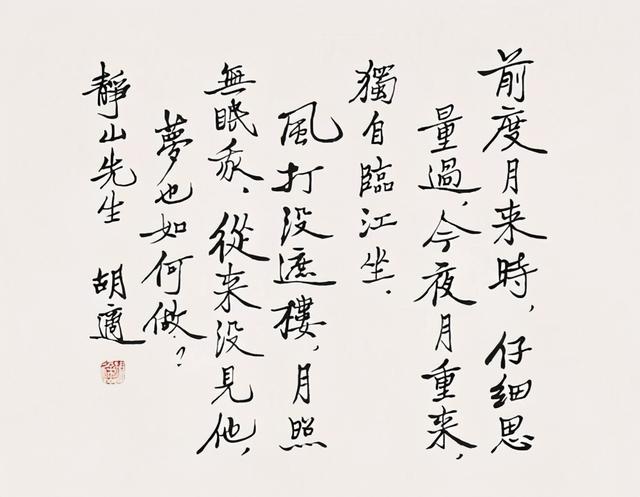 前度月来時，仔細思
量過，今夜月重来，
獨自臨江坐．
風打没遮樓，月照
無眠我、從来没見他，
夢也如何做？
靜山先生 胡適